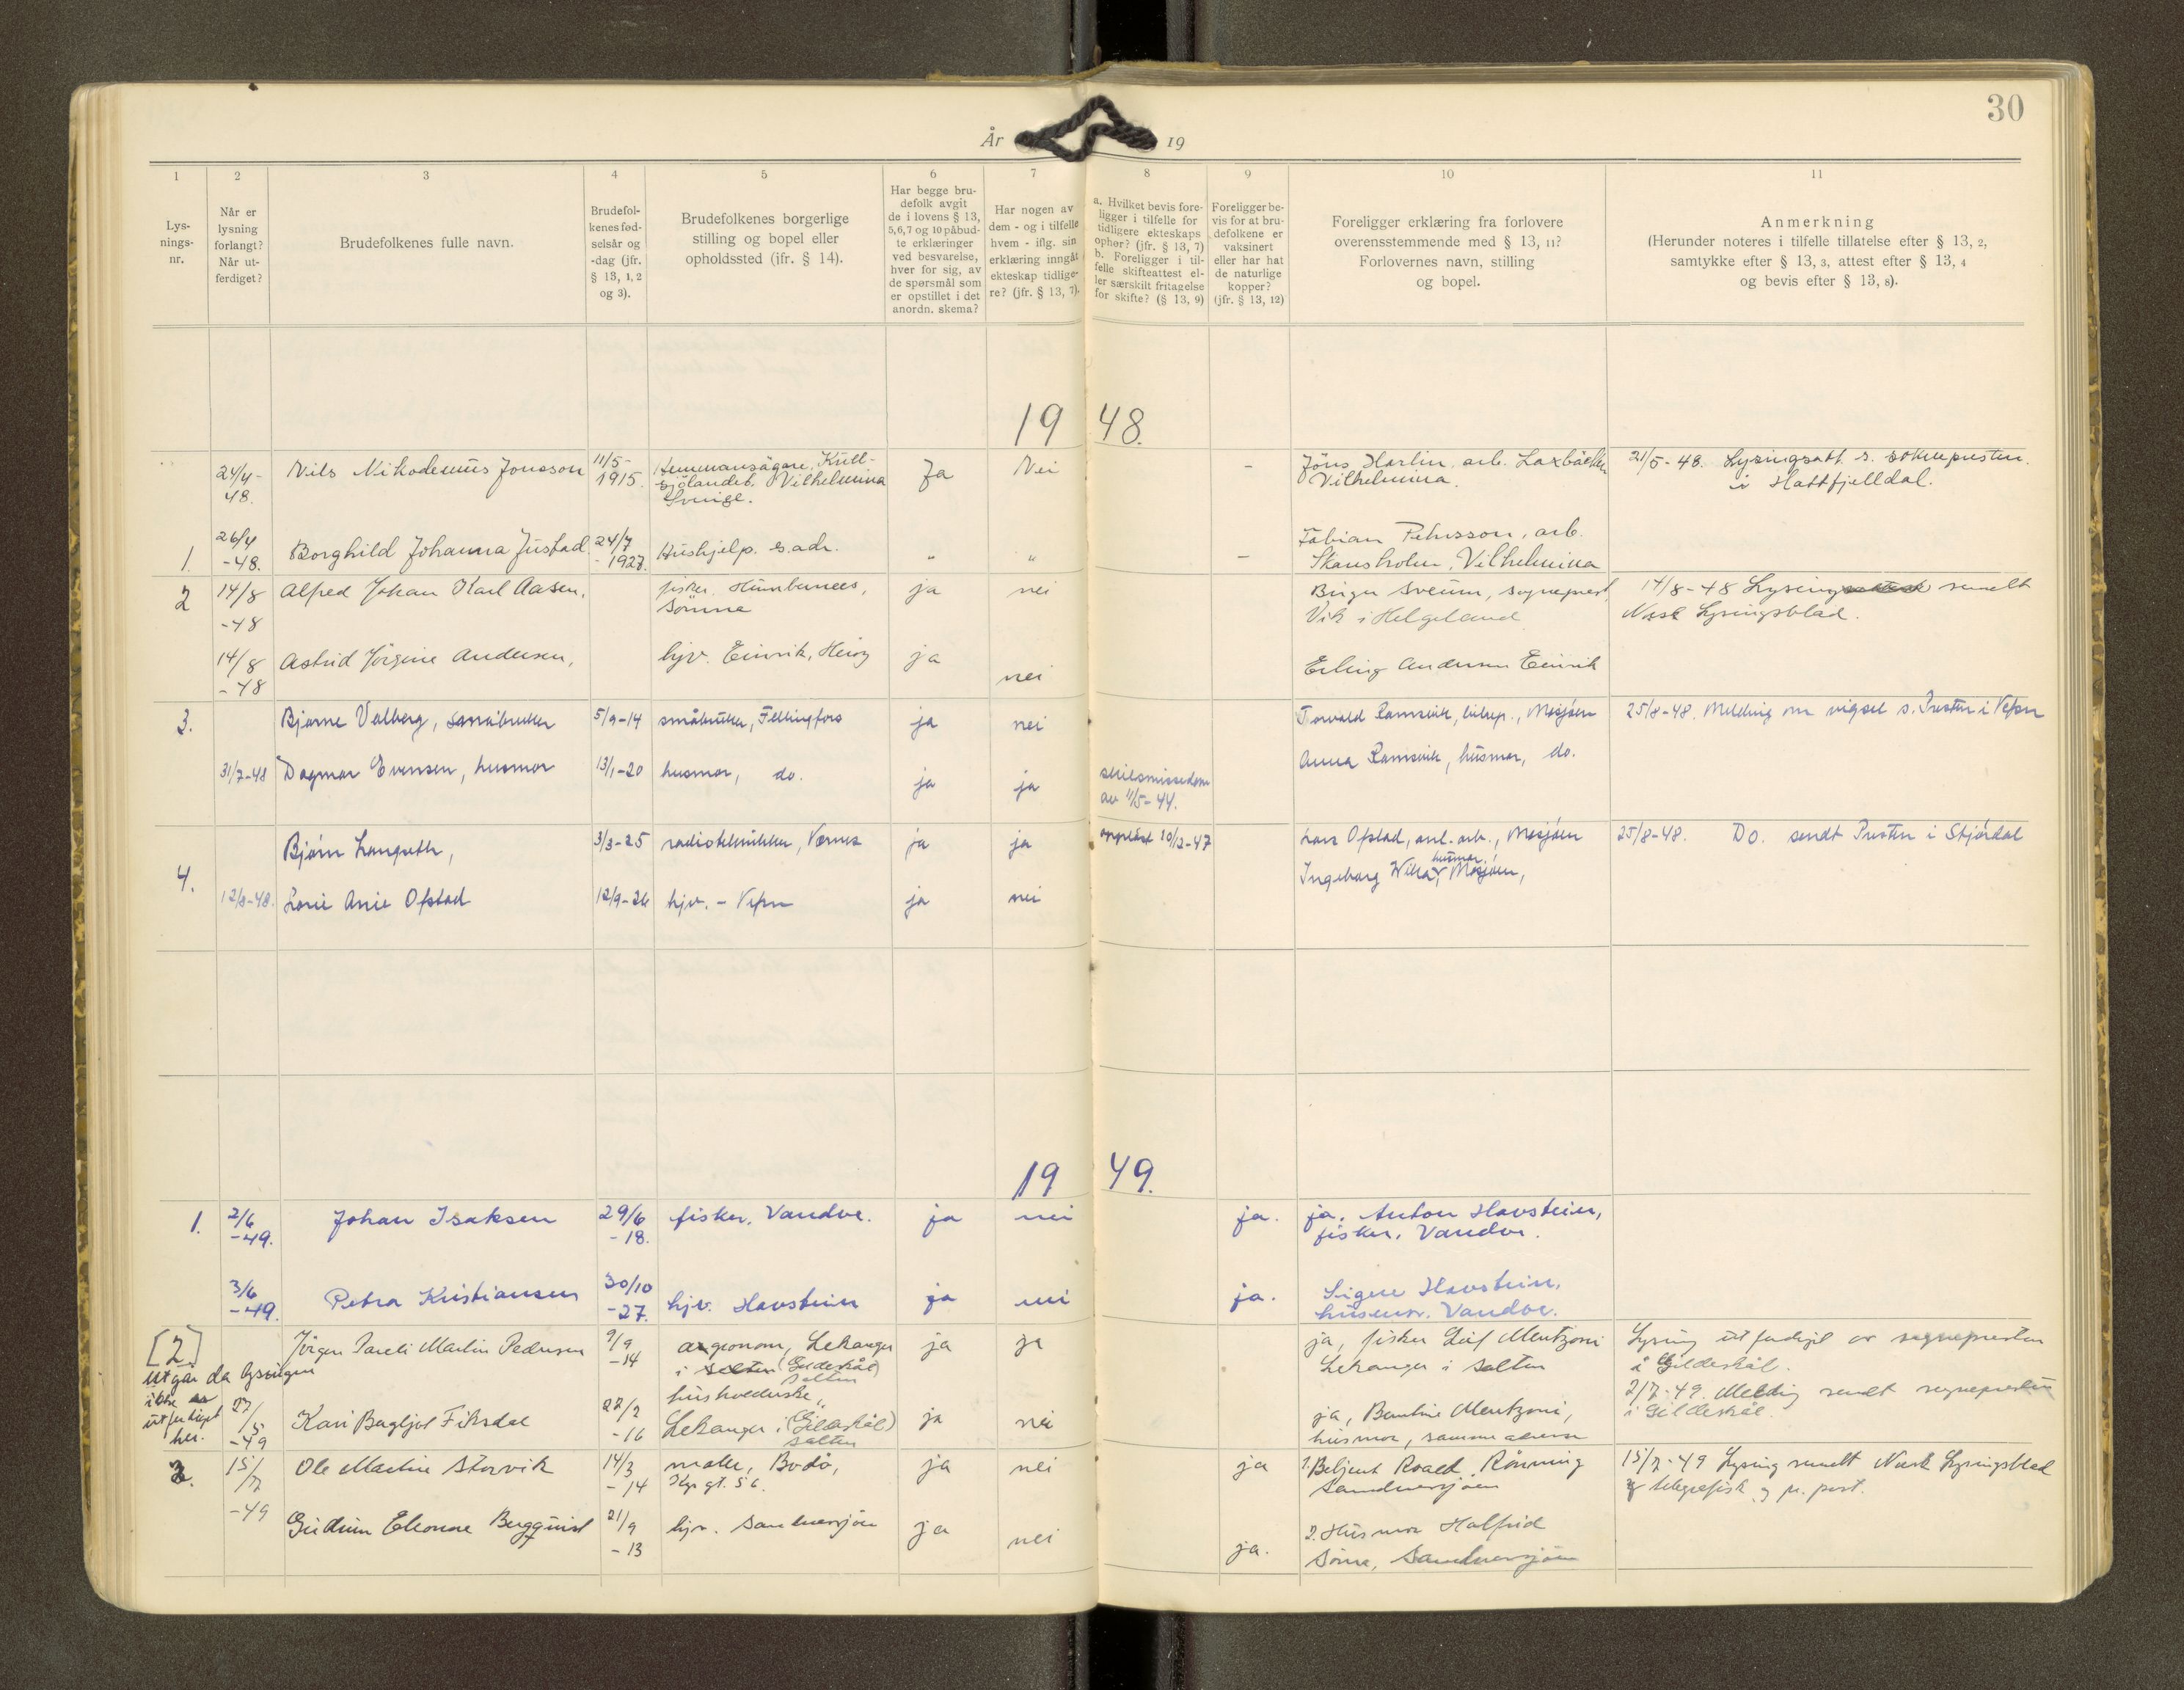 30
År 19
1 2 3 4 5 6 7 8 9 10 11
Lys-
nings-
nr.
Når er
lysning
forlangt?
Når ut-
ferdiget?
Brudefolkenes fulle navn.
Brudefol-
kenes fød-
selsår og
-dag (jfr.
§ 13, 1, 2
og 3).
Brudefolkenes borgerlige
stilling og bopel eller
opholdssted (ifr. § 14).
Har begge bru-
defolk avgit
de i lovens § 13,
5,6,7 og 10 påbud-
te erklæringer
ved besvarelse,
hver for sig, av
de spørsmål som
er opstillet i det
anordn. skema?
Har nogen av
dem - og i tilfelle
hvem - iflg. sin
erklæring inngåt
ekteskap tidlige-
re? (jfr. § 13, 7).
a. Hvilket bevis fore-
ligger i tilfelle for
tidligere ekteskaps
ophør? (jfr. § 13, 7)
b. Foreligger i til-
felle skifteattest el-
ler særskilt fritagelse
for skifte? (§ 13, 9)
Foreligger be-
vis for at bru-
defolkene er
vaksinert
eller har hat
de naturlige
kopper?
(jfr. § 13, 12)
Foreligger erklæring fra forlovere
overensstemmende med § 13, 11?
Forlovernes navn, stilling
og bopel.
Anmerkning
(Herunder noteres i tilfelle tillatelse efter § 13, 2,
samtykke efter § 13, 3, attest efter § 13, 4
og bevis efter § 13, 8).
19 48.
24/4-
48.
Nils Nikodemus Jonsson
11/5-
1915.
Hemmansägare, Kull-
sjölandet, Vilhelmina
Sverige.
Ja
Nei
-
Jöns Harlin, arb. Laxbäcken
Vilhelmina.
21/5-48. Lysingsatt. s. sokneprestn.
i Hattfjelldal.
1.
26/4
-48.
Borghild Johanna Justad
24/7
-1927.
Hushjelp. s. adr.
"
"
-
Fabian Pehrsson, arb.
Skansholm, Vilhelmina
2
14/8
-48
Alfred Johan Karl Aasen,
fisker,
Sömna
ja
nei
Birger Sveum, sogneprest,
Vik i Helgeland
14/8-48 Lysing sendt
Norsk Lysingsblad.
14/8
-48
Astrid Jörgine Andersen,
hjv. Einvik, Herøy
ja
nei
Erling Andersen Einvik
3.
Bjarne Valberg, småbruker
5/9-14
småbruker, Fellingfors
ja
nei
Torvald Ramsvik, Mosjøen
25/8-48. Melding om vigsel s. Presten i Vefsn
31/7-48
Dagmar Evensen, husmor
13/1-20
husmor, do.
ja
ja
skilsmissedom
av 11/5-44.
Anna Ramsvik, husmor, do.
4.
Bjørn Langseth,
3/3-25
radiotekniker, Værnes
ja
ja
oppløst 10/12-47
Lars Ofstad, anl.arb., Mosjøen
25/8-48. Do. sendt Presten i Stjørdal
12/8-48.
Ofstad
12/9-26
hjv. - Vefsn
ja
nei
husmor
Ingeborg Mosjøen,
19 49.
1.
2/6
-49.
Johan Isaksen
29/6
-18.
fisker. Vandve.
ja
nei
ja.
ja. Anton Havstein,
fisker. Vandve.
3/6
-49.
Petra Kristiansen
30/10
-27.
hjv. Havstein
ja
nei
ja.
Signe Havstein,
husmor. Vandve.
[2]
utgår da lysingen
ikke er
utferdiget
her.
Jörgen Martin Pedersen
9/9
-14
agronom, Lekanger
i Salten (Gildeskål)
Salten
ja
ja
ja, fisker Leif Mentzoni
Lekanger i Salten
Lysing utferdiget av sognepresten
i Gildeskål.
2/7-49. Melding sendt sognepresten
i Gildeskål.
27/
5
-49
Kari Bergljot Fiksdal
22/2
-16
husholderske,
Lekanger i (Gildeskål)
Salten
ja
nei
ja, Bentine Mentzoni,
husmor, samme adresse
3.
15/
7
-49
Ole Martin Storvik
14/3
-14
maler, Bodø,
gt. 56.
ja
nei
ja
1. Betjent Roald Rönning
Sandnessjøen
15/7-49 Lysing sendt Norsk Lysingsblad
telegrafisk og pr. post.
Gudrun Eleonore Bergquist
21/9
-13
hjv. Sandnessjøen
ja
nei
ja.
2. Husmor Halfrid
Sandnessjøen